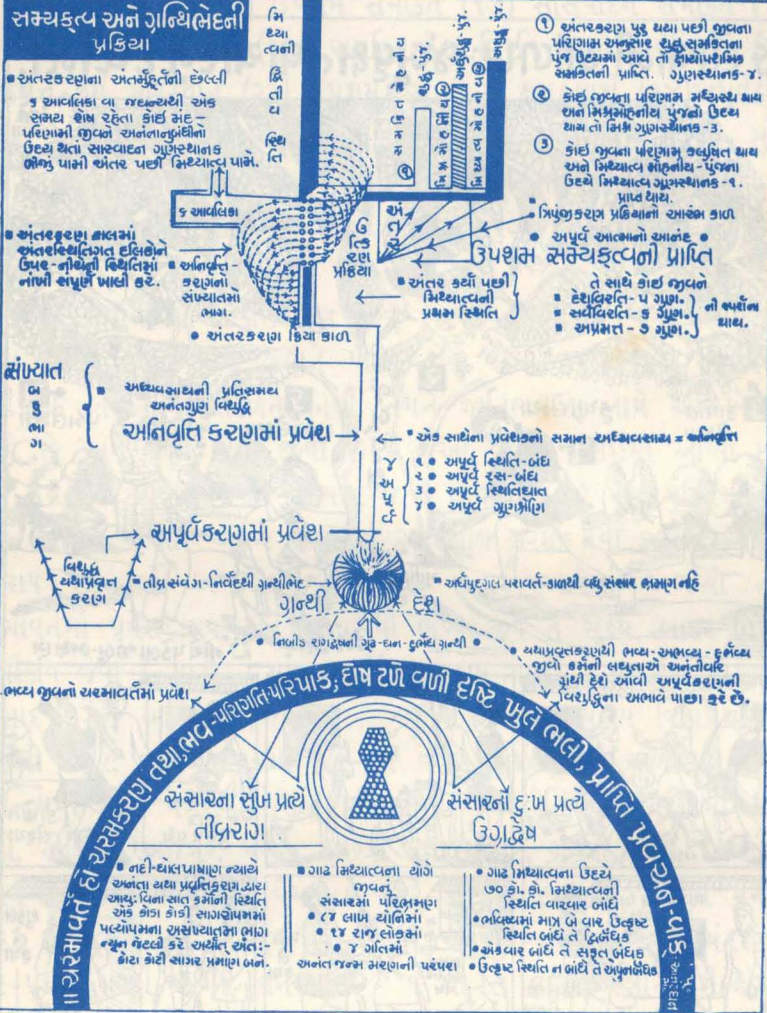 સમ્યક્ત્વ અને ગ્રન્થિભેદની
પ્રક્રિયા
મિથ્યાત્વની દ્વિતીય સ્થિતિ
■ અંતરકરણના અંતર્મુહૂર્તની છેલ્લી
૬ આવલિકા વા જઘન્યથી એક
સમય શેષ રહેતા કોઈ મંદ-
પરિણામી જીવને અનંતાનુબંધીનો
ઉદય થતાં સાસ્વાદન ગુણસ્થાનક
બીજું પામી અંતર પછી મિથ્યાત્વ પામે.
૬ આવલિકા
■ અંતરકરણ કાલમાં
અંતરસ્થિતિગત દલિકોને
ઉપર-નીચેની સ્થિતિમાં
નાંખી સંપૂર્ણ ખાલી કરે.
■ અનિવૃત્તિ-
કરણનો
સંખ્યાતમો
ભાગ.
● અંતરકરણ ક્રિયા કાળ
સમકિત મોહનીય
શુદ્ધ-પુંજ.
૧
મિશ્રમોહનીય ૨
અર્ધશુદ્ધ-પુંજ.
મિથ્યાત્વ મોહનીય ૩
અશુદ્ધ-પુંજ.
૧ અંતરકરણ પુરુ થયા પછી જીવના
પરિણામ અનુસાર શુદ્ધ સમકિતના
પુંજ ઉદયમાં આવે તો ક્ષાયોપશમિક
સમકિતની પ્રાપ્તિ. ગુણસ્થાનક-૪.
૨ કોઈ જીવના પરિણામ મધ્યસ્થ થાય
અને મિશ્રમોહનીય પુંજનો ઉદય
થાય તો મિશ્ર ગુણસ્થાનક-૩.
૩ કોઈ જીવના પરિણામ કલુષિત થાય
અને મિથ્યાત્વ મોહનીય-પુંજના
ઉદયે મિથ્યાત્વ ગુણસ્થાનક-૧.
પ્રાપ્ત થાય.
● ત્રિપુંજીકરણ પ્રક્રિયાનો આરંભ કાળ
● અપૂર્વ આત્માનો આનંદ ●
ઉપશમ સમ્યક્ત્વની પ્રાપ્તિ
અંતર
પ્રક્રિયા
■ અંતર કર્યા પછી
મિથ્યાત્વની
પ્રથમ સ્થિતિ
તે સાથે કોઈ જીવને
■ દેશવિરતિ-૫ ગુણ.
■ સર્વવિરતિ-૬ ગુણ.
■ અપ્રમત્ત-૭ ગુણ.
ની સ્પર્શના
થાય.
સંખ્યાત
બહુ
ભાગ
■ અધ્યવસાયની પ્રતિસમય
અનંતગુણ વિશુદ્ધિ
અનિવૃત્તિ કરણમાં પ્રવેશ
■ એક સાથેના પ્રવેશકનો સમાન અધ્યવસાય = અનિવૃત્તિ
૪ અપૂર્વ
૧ ● અપૂર્વ સ્થિતિ-બંધ
૨ ● અપૂર્વ રસ-બંધ
૩ ● અપૂર્વ સ્થિતિઘાત
૪ ● અપૂર્વ ગુણશ્રેણિ
અપૂર્વકરણમાં પ્રવેશ
વિશુદ્ધ
યથાપ્રવૃત્ત
કરણ
■ તીવ્ર સંવેગ-નિર્વેદથી ગ્રન્થીભેદ
■ અર્ધપુદ્ગલ પરાવર્ત-કાળથી વધુ સંસાર ભ્રમણ નહિ
ગ્રન્થી દેશ
● નિબીડ રાગદ્વેષની ગૂઢ-ઘન-દુર્ભેદ્ય ગ્રન્થી ●
● યથાપ્રવૃત્તકરણથી ભવ્ય-અભવ્ય-દુર્ભવ્ય
જીવો કર્મની લઘુતાએ અનંતીવાર
ગ્રંથી દેશે આવી અપૂર્વકરણની
વિશુદ્ધિના અભાવે પાછા ફરે છે.
ભવ્ય જીવનો ચરમાવર્તમાં પ્રવેશ
॥ ચરમાવર્ત હો ચરમકરણ તથા, ભવ-પરિણતિ-પરિપાક; દોષ ટળે વળી દૃષ્ટિ ખુલે ભલી, પ્રાપ્તિ પ્રવચન-વાક
સંસારના સુખ પ્રત્યે
તીવ્રરાગ
સંસારના દુઃખ પ્રત્યે
ઉગ્રદ્વેષ
■ નદી-ઘોલપાષાણ ન્યાયે
અનંતા યથા પ્રવૃત્તિકરણ દ્વારા
આયુઃ વિના સાત કર્મોની સ્થિતિ
એક કોડા કોડી સાગરોપમમાં
પલ્યોપમના અસંખ્યાતમા ભાગ
ન્યૂન જેટલી કરે અર્થાત્ અંતઃ-
કોટા કોટી સાગર પ્રમાણ બને.
■ ગાઢ મિથ્યાત્વના યોગે
જીવનું
સંસારમાં પરિભ્રમણ
● ૮૪ લાખ યોનિમાં
● ૧૪ રાજ લોકમાં
● ૪ ગતિમાં
અનંત જન્મ મરણની પરંપરા
● ગાઢ મિથ્યાત્વના ઉદયે
૭૦ કો. કો. મિથ્યાત્વની
સ્થિતિ વારંવાર બાંધે
● ભવિષ્યમાં માત્ર બે વાર ઉત્કૃષ્ટ
સ્થિતિ બાંધે તે દ્વિર્બંધક
● એકવાર બાંધે તે સકૃત્ બંધક
● ઉત્કૃષ્ટ સ્થિતિ ન બાંધે તે અપુનર્બંધક